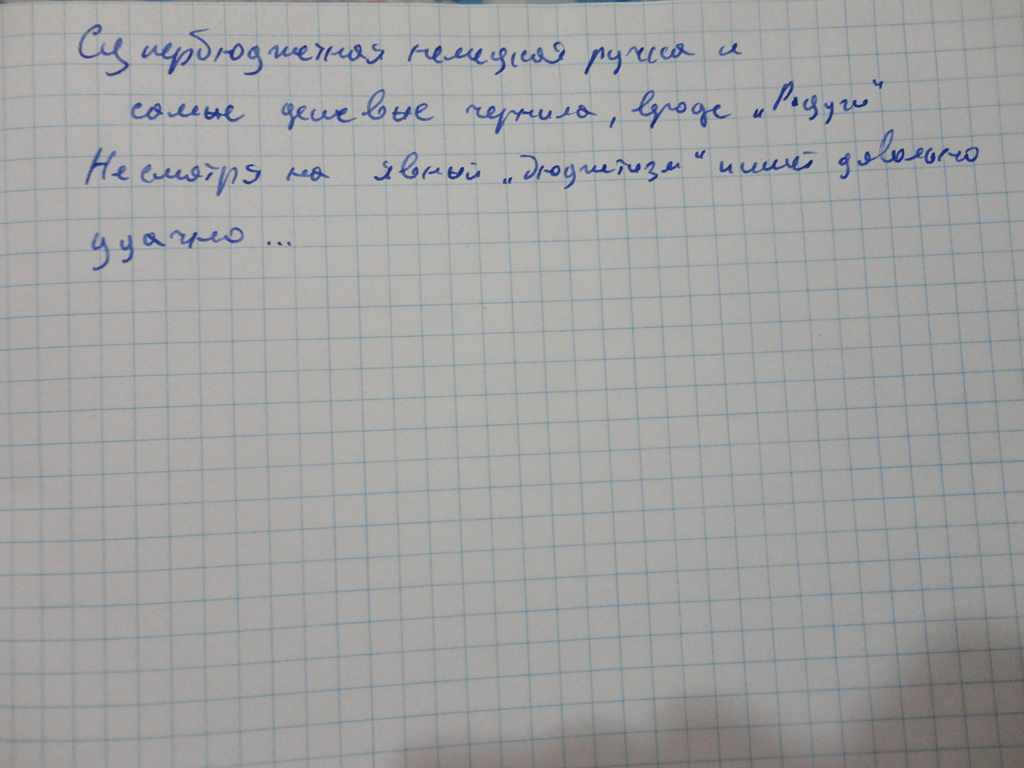 Супербюджетная немецкая ручка и
самые дешевые чернила, вроде „Радуги“
Несмотря на явный „бюджетизм“ пишет довольно
удачно...